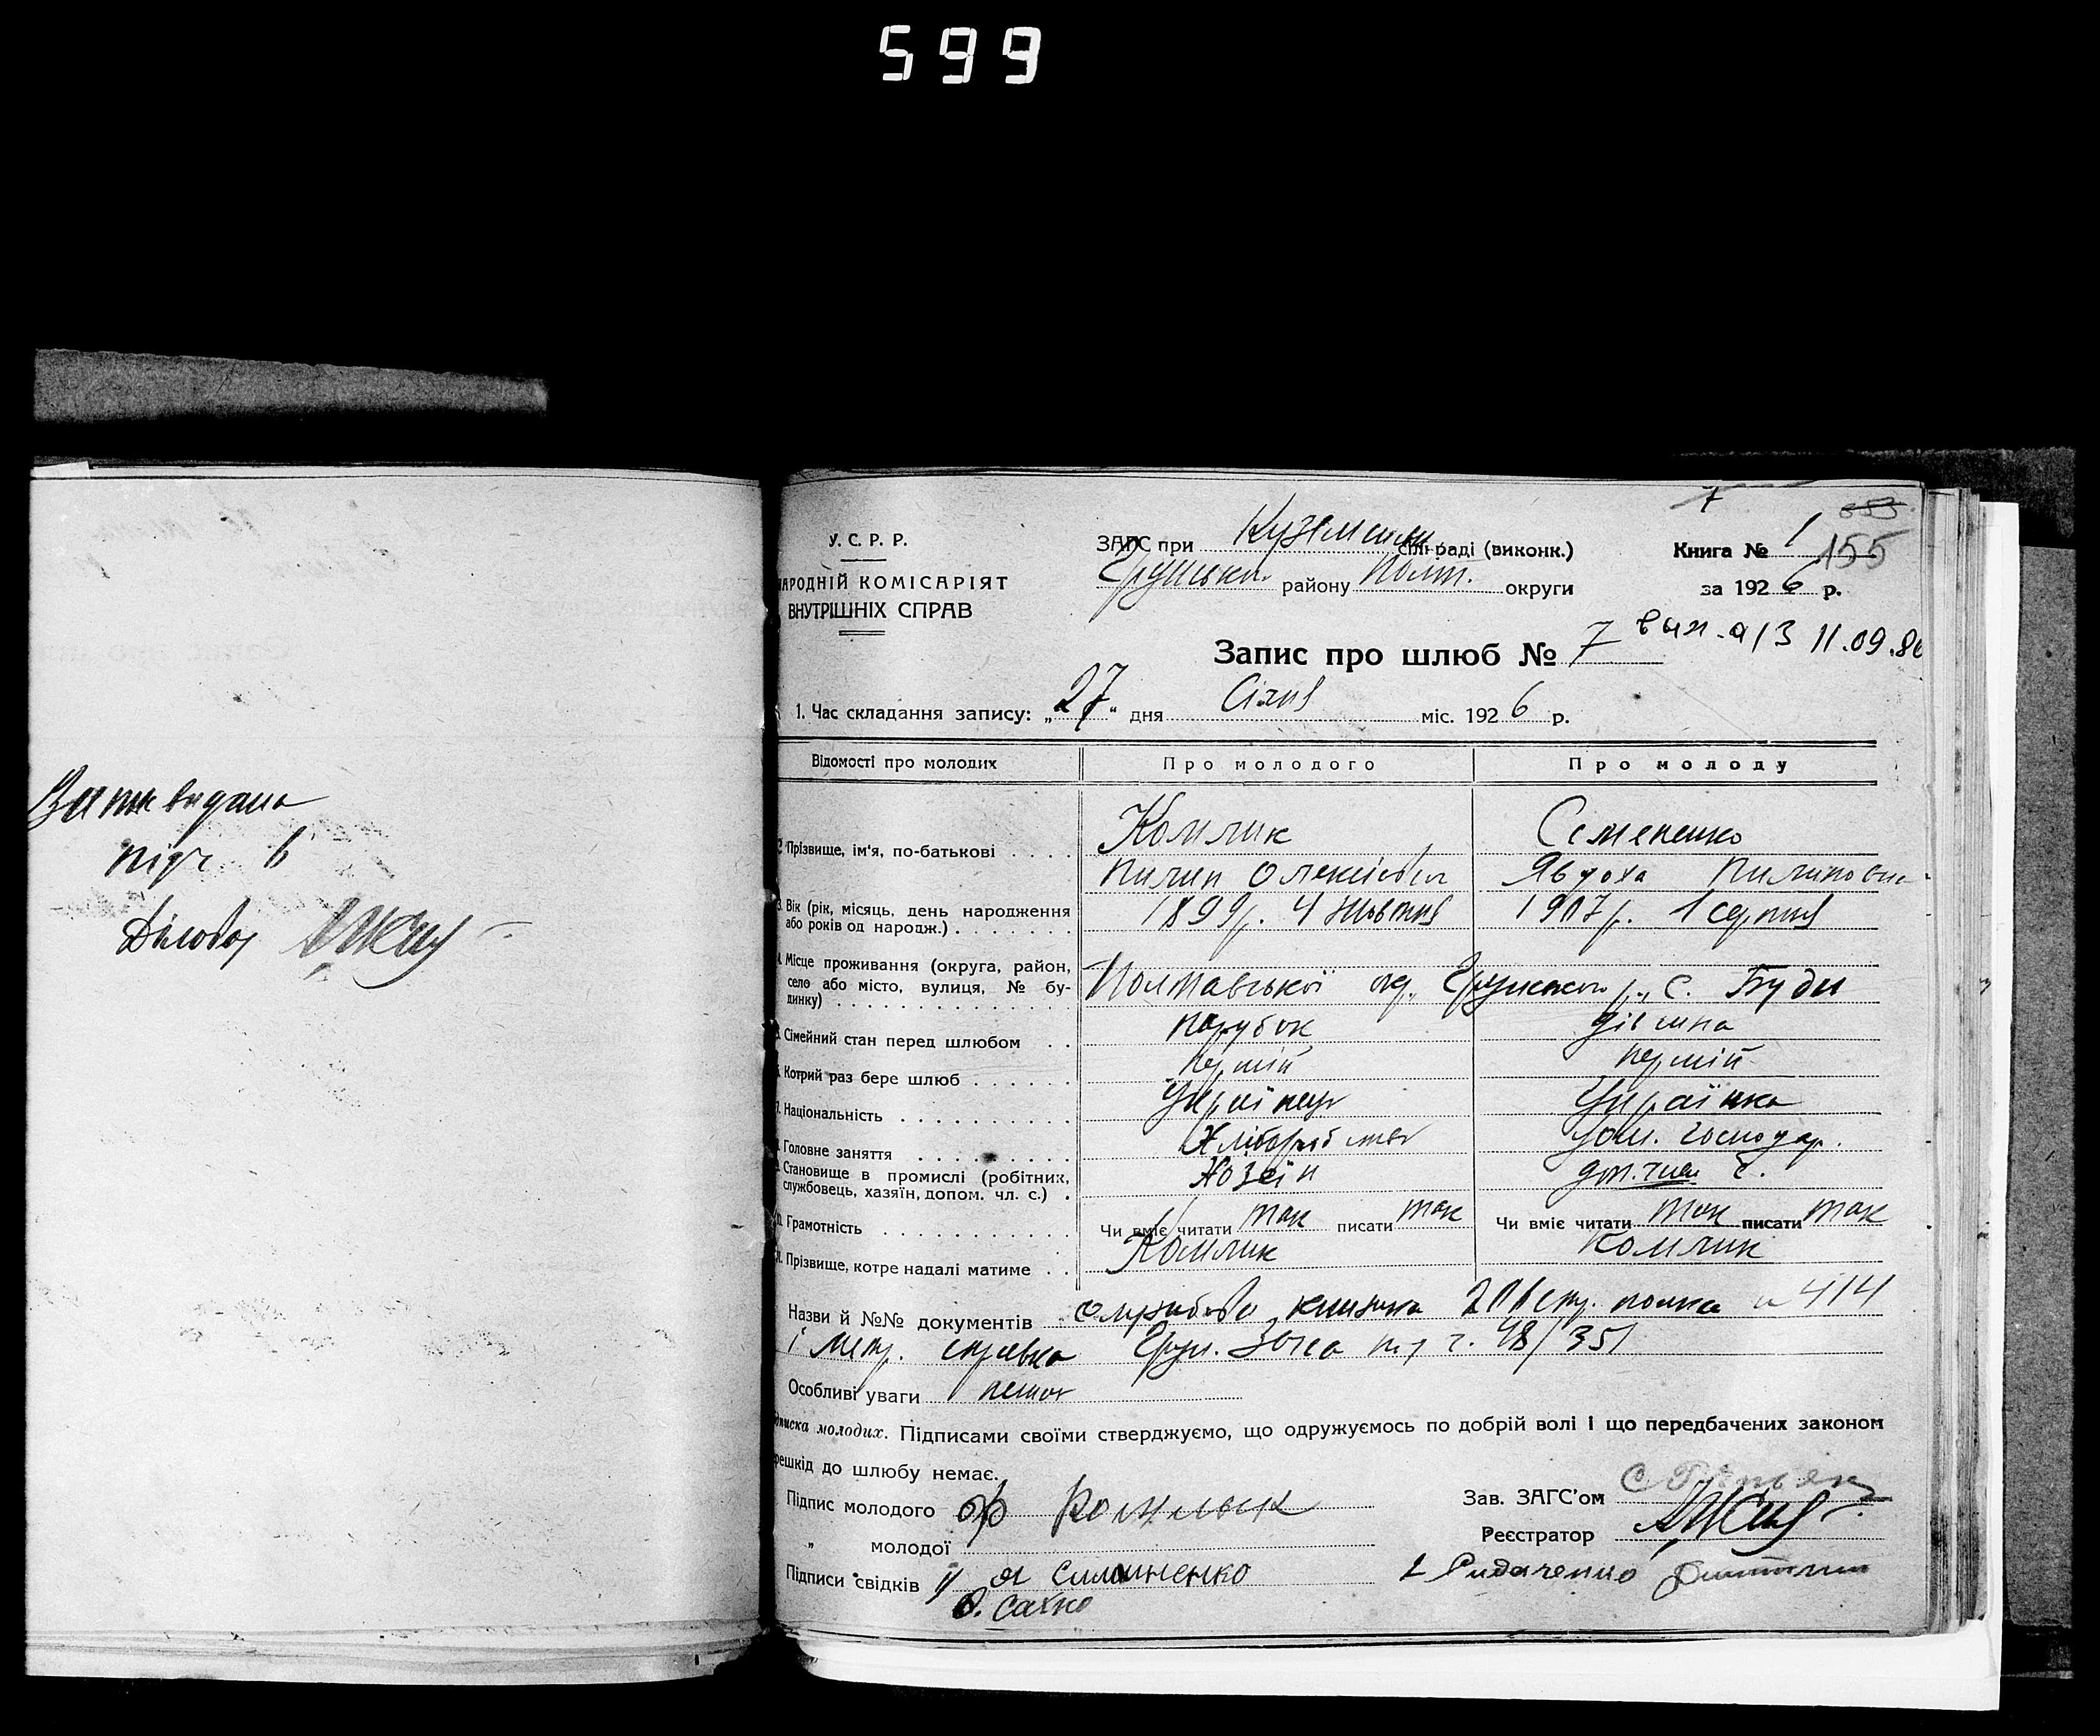 599
Затв видана
під ч 6
Діловод
7
У. С. Р. Р.
НАРОДНІЙ КОМІСАРІЯТ
ВНУТРІШНІХ СПРАВ
ЗАГС при Куземській сільраді (виконк.)
Грунськ. району Полт. округи
Книга № 1
155
за 1926 р.
Запис про шлюб № 7
11.09.86
1. Час складання запису: „27“ дня Січня міс. 1926 р.
Відомості про молодих Про молодого Про молоду
2. Прізвище, ім'я, по-батькові . . . . Комлик Семененко
Пилип Олексієвич Явдоха Пилиповна
3. Вік (рік, місяць, день народження або років од народж.) . . . . . . . 1899р. 4 жовтня 1907р. 1 серпня
4. Місце проживання (округа, район, село або місто, вулиця, № будинку) . . . . . . . . . . . . . Полтавської ок., Грунськ. р., с. Буди
5. Сімейний стан перед шлюбом . . парубок дівчина
6. Котрий раз бере шлюб . . . . . . перший перший
7. Національність . . . . . . . . . . Українець Українка
8. Головне заняття . . . . . . . . . Хліборобство дом. господар.
9. Становище в промислі (робітник, службовець, хазяїн, допом. чл. с.) . Хозяїн доп. член с.
10. Грамотність . . . . . . . . . . . Чи вміє читати так писати так Чи вміє читати так писати так
11. Прізвище, котре надалі матиме . . Комлик Комлик
Назви й №№ документів книжка полка № 414
і метр. справка Грун. Загса під ч. 48/351
Особливі уваги немає
Підписка молодих. Підписами своїми стверджуємо, що одружуємось по добрій волі і що передбачених законом
перешкід до шлюбу немає.
Підпис молодого Комлык
Зав. ЗАГС'ом
„ молодої
Реєстратор
Підписи свідків 1) Я Симиненко 2
О. Сахно